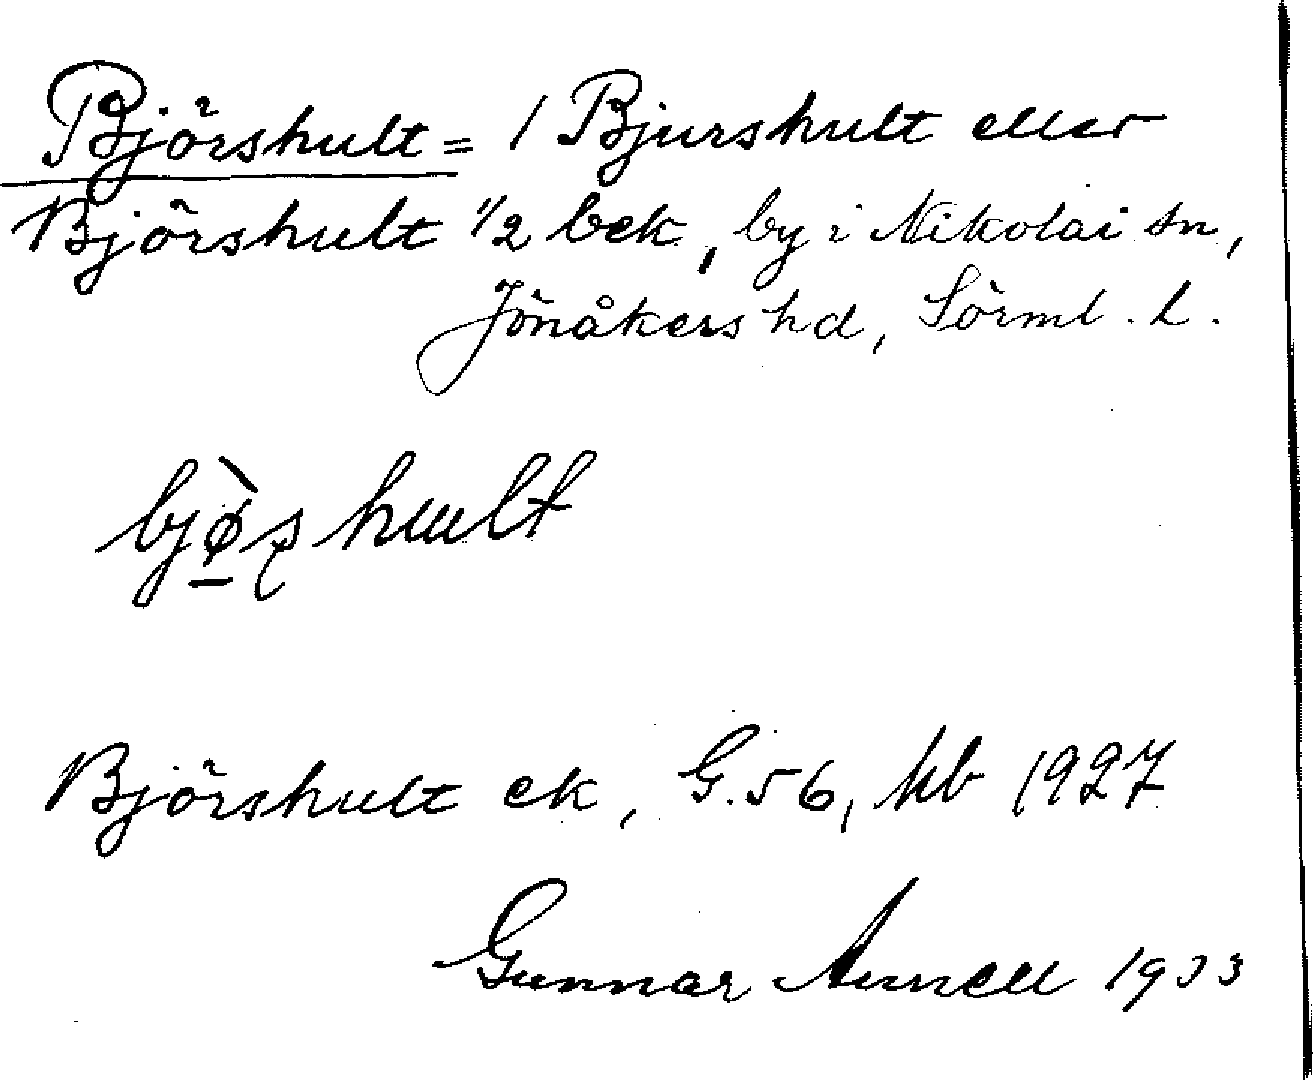 Björshult = / Bjurshult eller
Björshult 1/2 bek, by i Nikolai sn,
Jönåkers hd, Sörml. l.
hult
Björshult ek, G. 56, kb 1927
Gunnar 1933